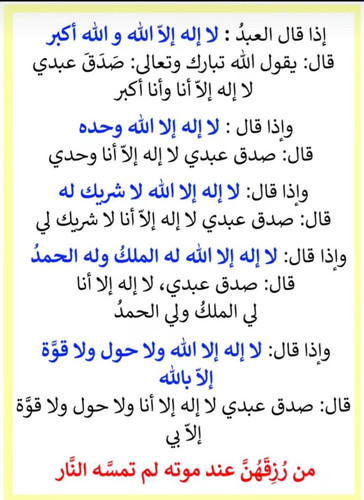 إذا قال العبدُ : لا إله إلاّ الله و الله أكبر
قال: يقول الله تبارك وتعالى: صَدَقَ عبدي
لا إله إلاّ أنا وأنا أكبر
وإذا قال : لا إله إلا الله وحده
قال: صدق عبدي لا إله إلاّ أنا وحدي
وإذا قال: لا إله إلا الله لا شريك له
قال: صدق عبدي لا إله إلاّ أنا لا شريك لي
وإذا قال: لا إله إلا الله له الملكُ وله الحمدُ
قال: صدق عبدي، لا إله إلا أنا
لي الملكُ ولي الحمدُ
وإذا قال: لا إله إلا الله ولا حول ولا قوَّة
إلاّ بالله
قال: صدق عبدي لا إله إلا أنا ولا حول ولا قوَّة
إلاّ بي
من رُزِقَهُنَّ عند موته لم تمسَّه النَّار